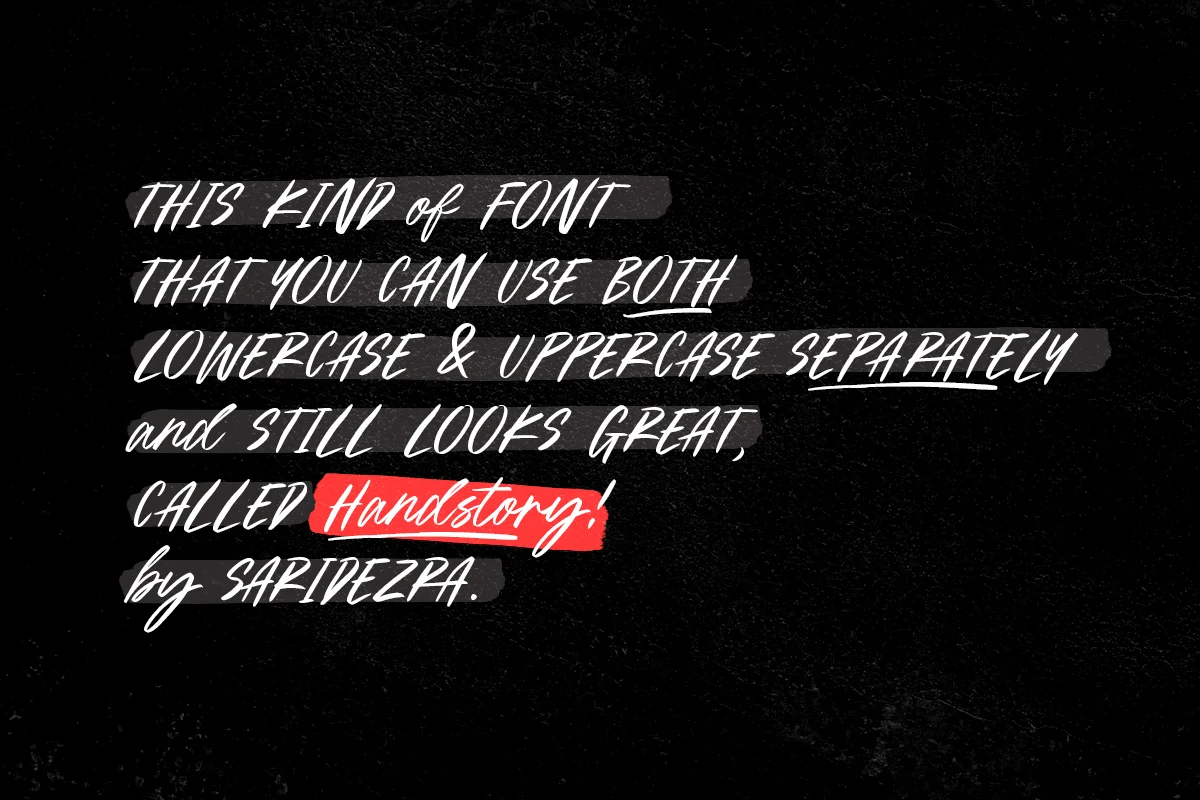 THIS KIND of FONT
THAT YOU CAN USE BOTH
LOWERCASE & UPPERCASE SEPARATELY
and STILL LOOKS GREAT,
CALLED Handstory!
by SARIDEZRA.